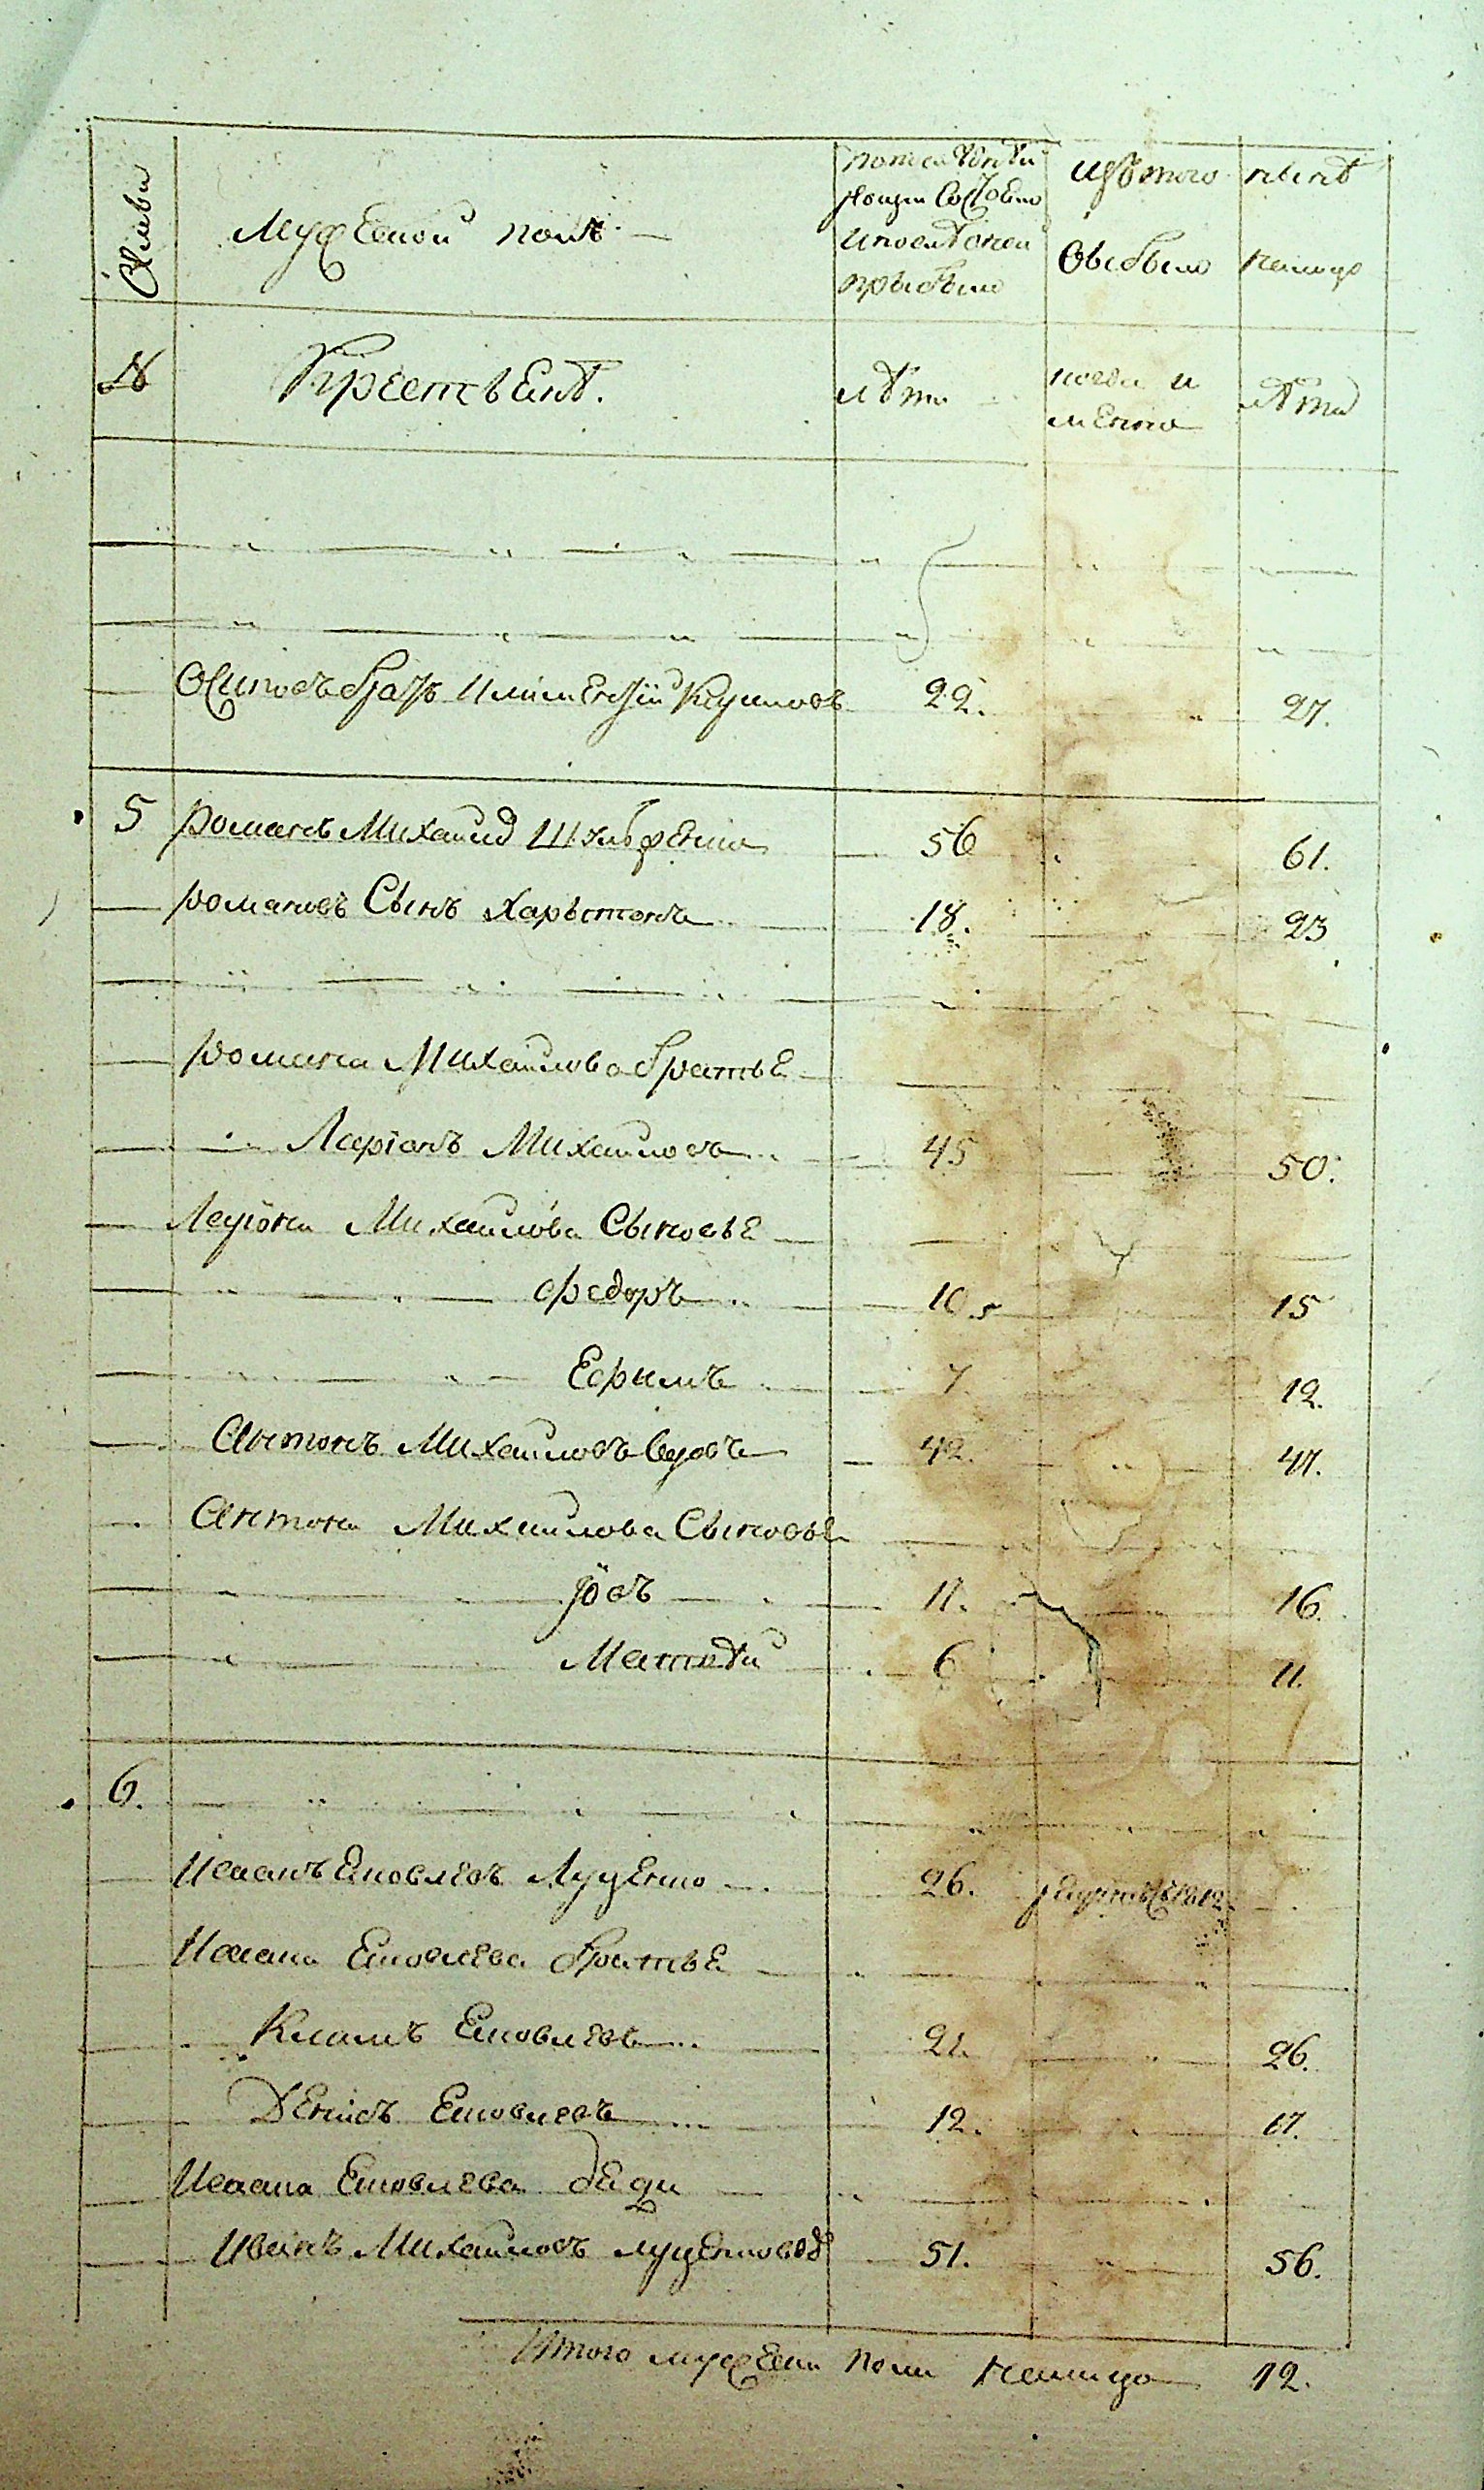 Семьи
Мужеской полъ
по последней
ревизіи состояло
и после оной
прибыло
изъ того
выбыло
ныне
налицо
№
Крестьяне.
лѣта
когда и
имянно
лѣта
братъ Климовъ 22. 27.
5 Романъ Михайлов 56 61.
Романовъ Сынъ Харытонъ 18. 23
Романа Михайлова братье
Ларіонъ Михайловъ 45 50.
Ларіона Михайлова Сыновье
Федоръ 10 15
Ефимъ 7 12.
Антонъ Михайловъ 42. 47.
Антона Михайлова Сыновье
Іовъ 11. 16.
Матвѣй 6 11.
6.
Исаакъ Яковлевъ Луценко 26.
Исаака Яковлева братье
Климъ Яковлевъ 21. 26.
Денисъ Яковлевъ 12. 17.
Исаака Яковлева дядя
Иванъ Михайловъ 51. 56.
Итого мужеска пола налицо 12.